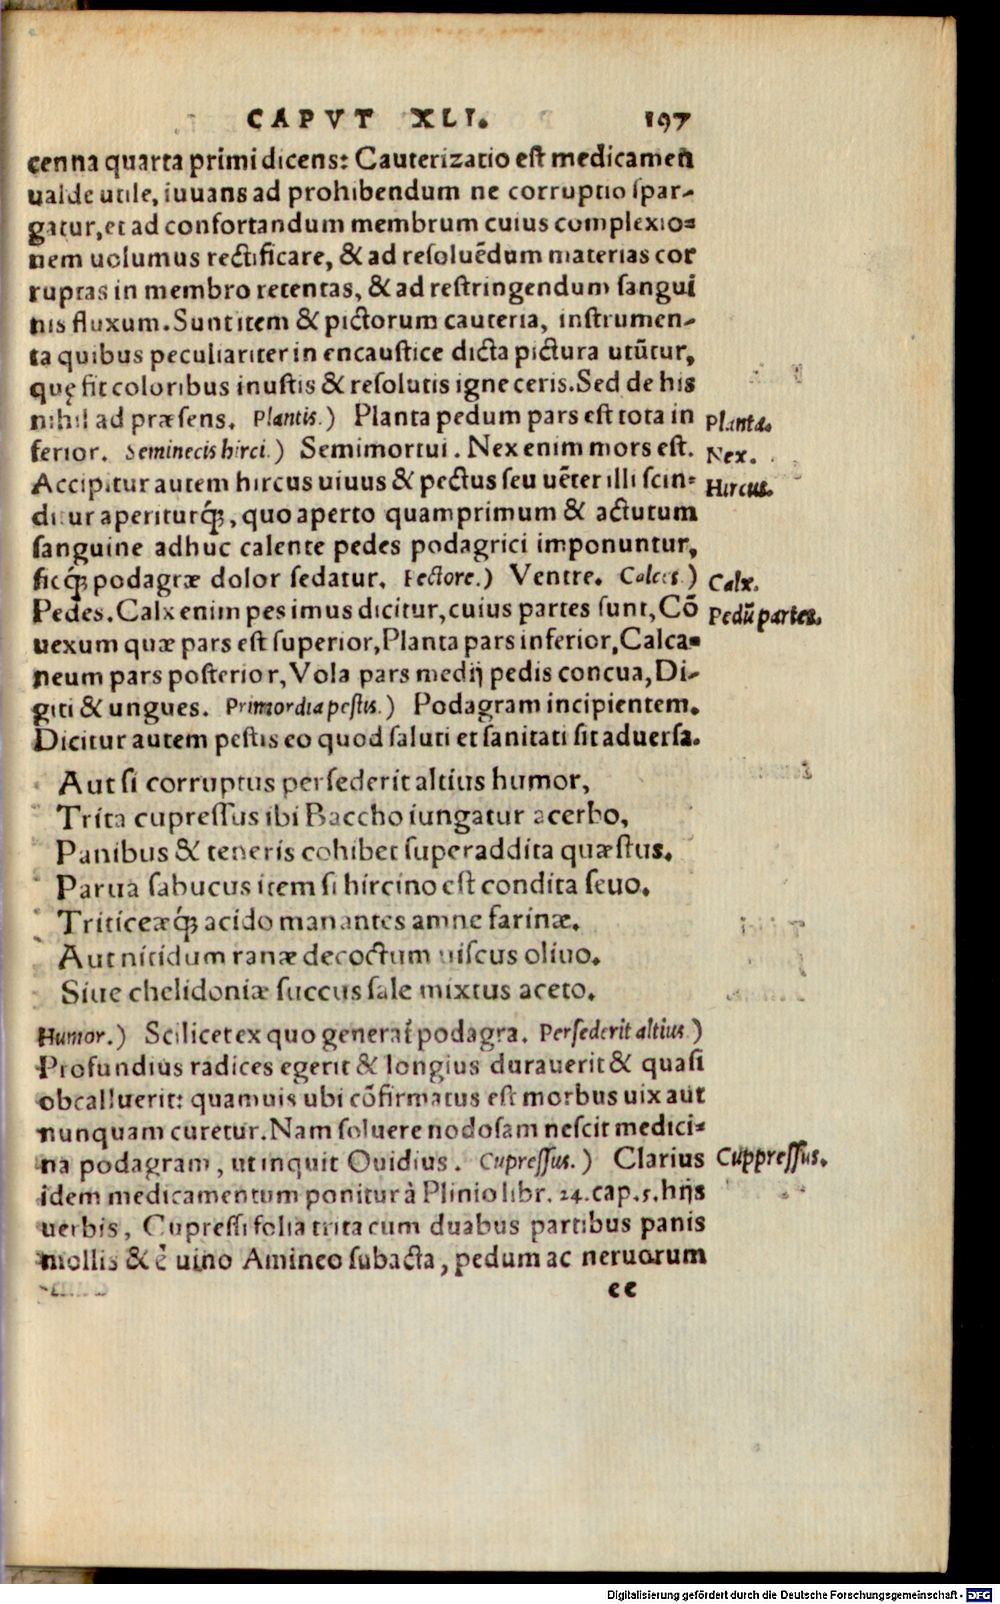 CAPVT XLI. 197
cenna quarta primi dicens: Cauterizatio est medicamen
ualde utile, iuuans ad prohibendum ne corruptio spar-
gatur, et ad confortandum membrum cuius complexio=
nem uolumus rectificare, & ad resoluēdum materias cor
ruptas in membro retentas, & ad restringendum sangui
nis fluxum. Sunt item & pictorum cauteria, instrumen-
ta quibus peculiariter in encaustice dicta pictura utūtur,
quę fit coloribus inustis & resolutis igne ceris. Sed de his
nihil ad præsens. Plantis.) Planta pedum pars est tota in
Planta.
ferior. Seminecis hirci.) Semimortui. Nex enim mors est.
Nex.
Accipitur autem hircus uiuus & pectus seu uēter illi scin=
Hircus.
ditur aperiturq́;, quo aperto quamprimum & actutum
sanguine adhuc calente pedes podagrici imponuntur,
sicq́; podagræ dolor sedatur. Pectore.) Ventre. Calces.)
Calx.
Pedes. Calx enim pes imus dicitur, cuius partes sunt, Cō
Pedū partes.
uexum quæ pars est superior, Planta pars inferior, Calca=
neum pars posterior, Vola pars medij pedis concua, Di-
giti & ungues. Primordia pestis.) Podagram incipientem.
Dicitur autem pestis eo quod saluti et sanitati sit aduersa.
Aut si corruptus persederit altius humor,
Trita cupressus ibi Baccho iungatur acerbo,
Panibus & teneris cohibet superaddita quæstus.
Parua sabucus item si hircino est condita seuo.
Triticeæq́; acido manantes amne farinæ.
Aut nitidum ranæ decoctum uiscus oliuo.
Siue chelidoniæ succus sale mixtus aceto.
Humor.) Scilicet ex quo generat podagra. Persederit altius.)
Profundius radices egerit & longius durauerit & quasi
obcalluerit: quamuis ubi cōfirmatus est morbus uix aut
nunquam curetur. Nam soluere nodosam nescit medici=
na podagram, ut inquit Ouidius. Cupressus.) Clarius
Cuppressus.
idem medicamentum ponitur à Plinio libr. 24. cap. 5. hijs
uerbis, Cupressi folia trita cum duabus partibus panis
mollis & è uino Amineo subacta, pedum ac neruorum
ee
Digitalisierung gefördert durch die Deutsche Forschungsgemeinschaft - DFG